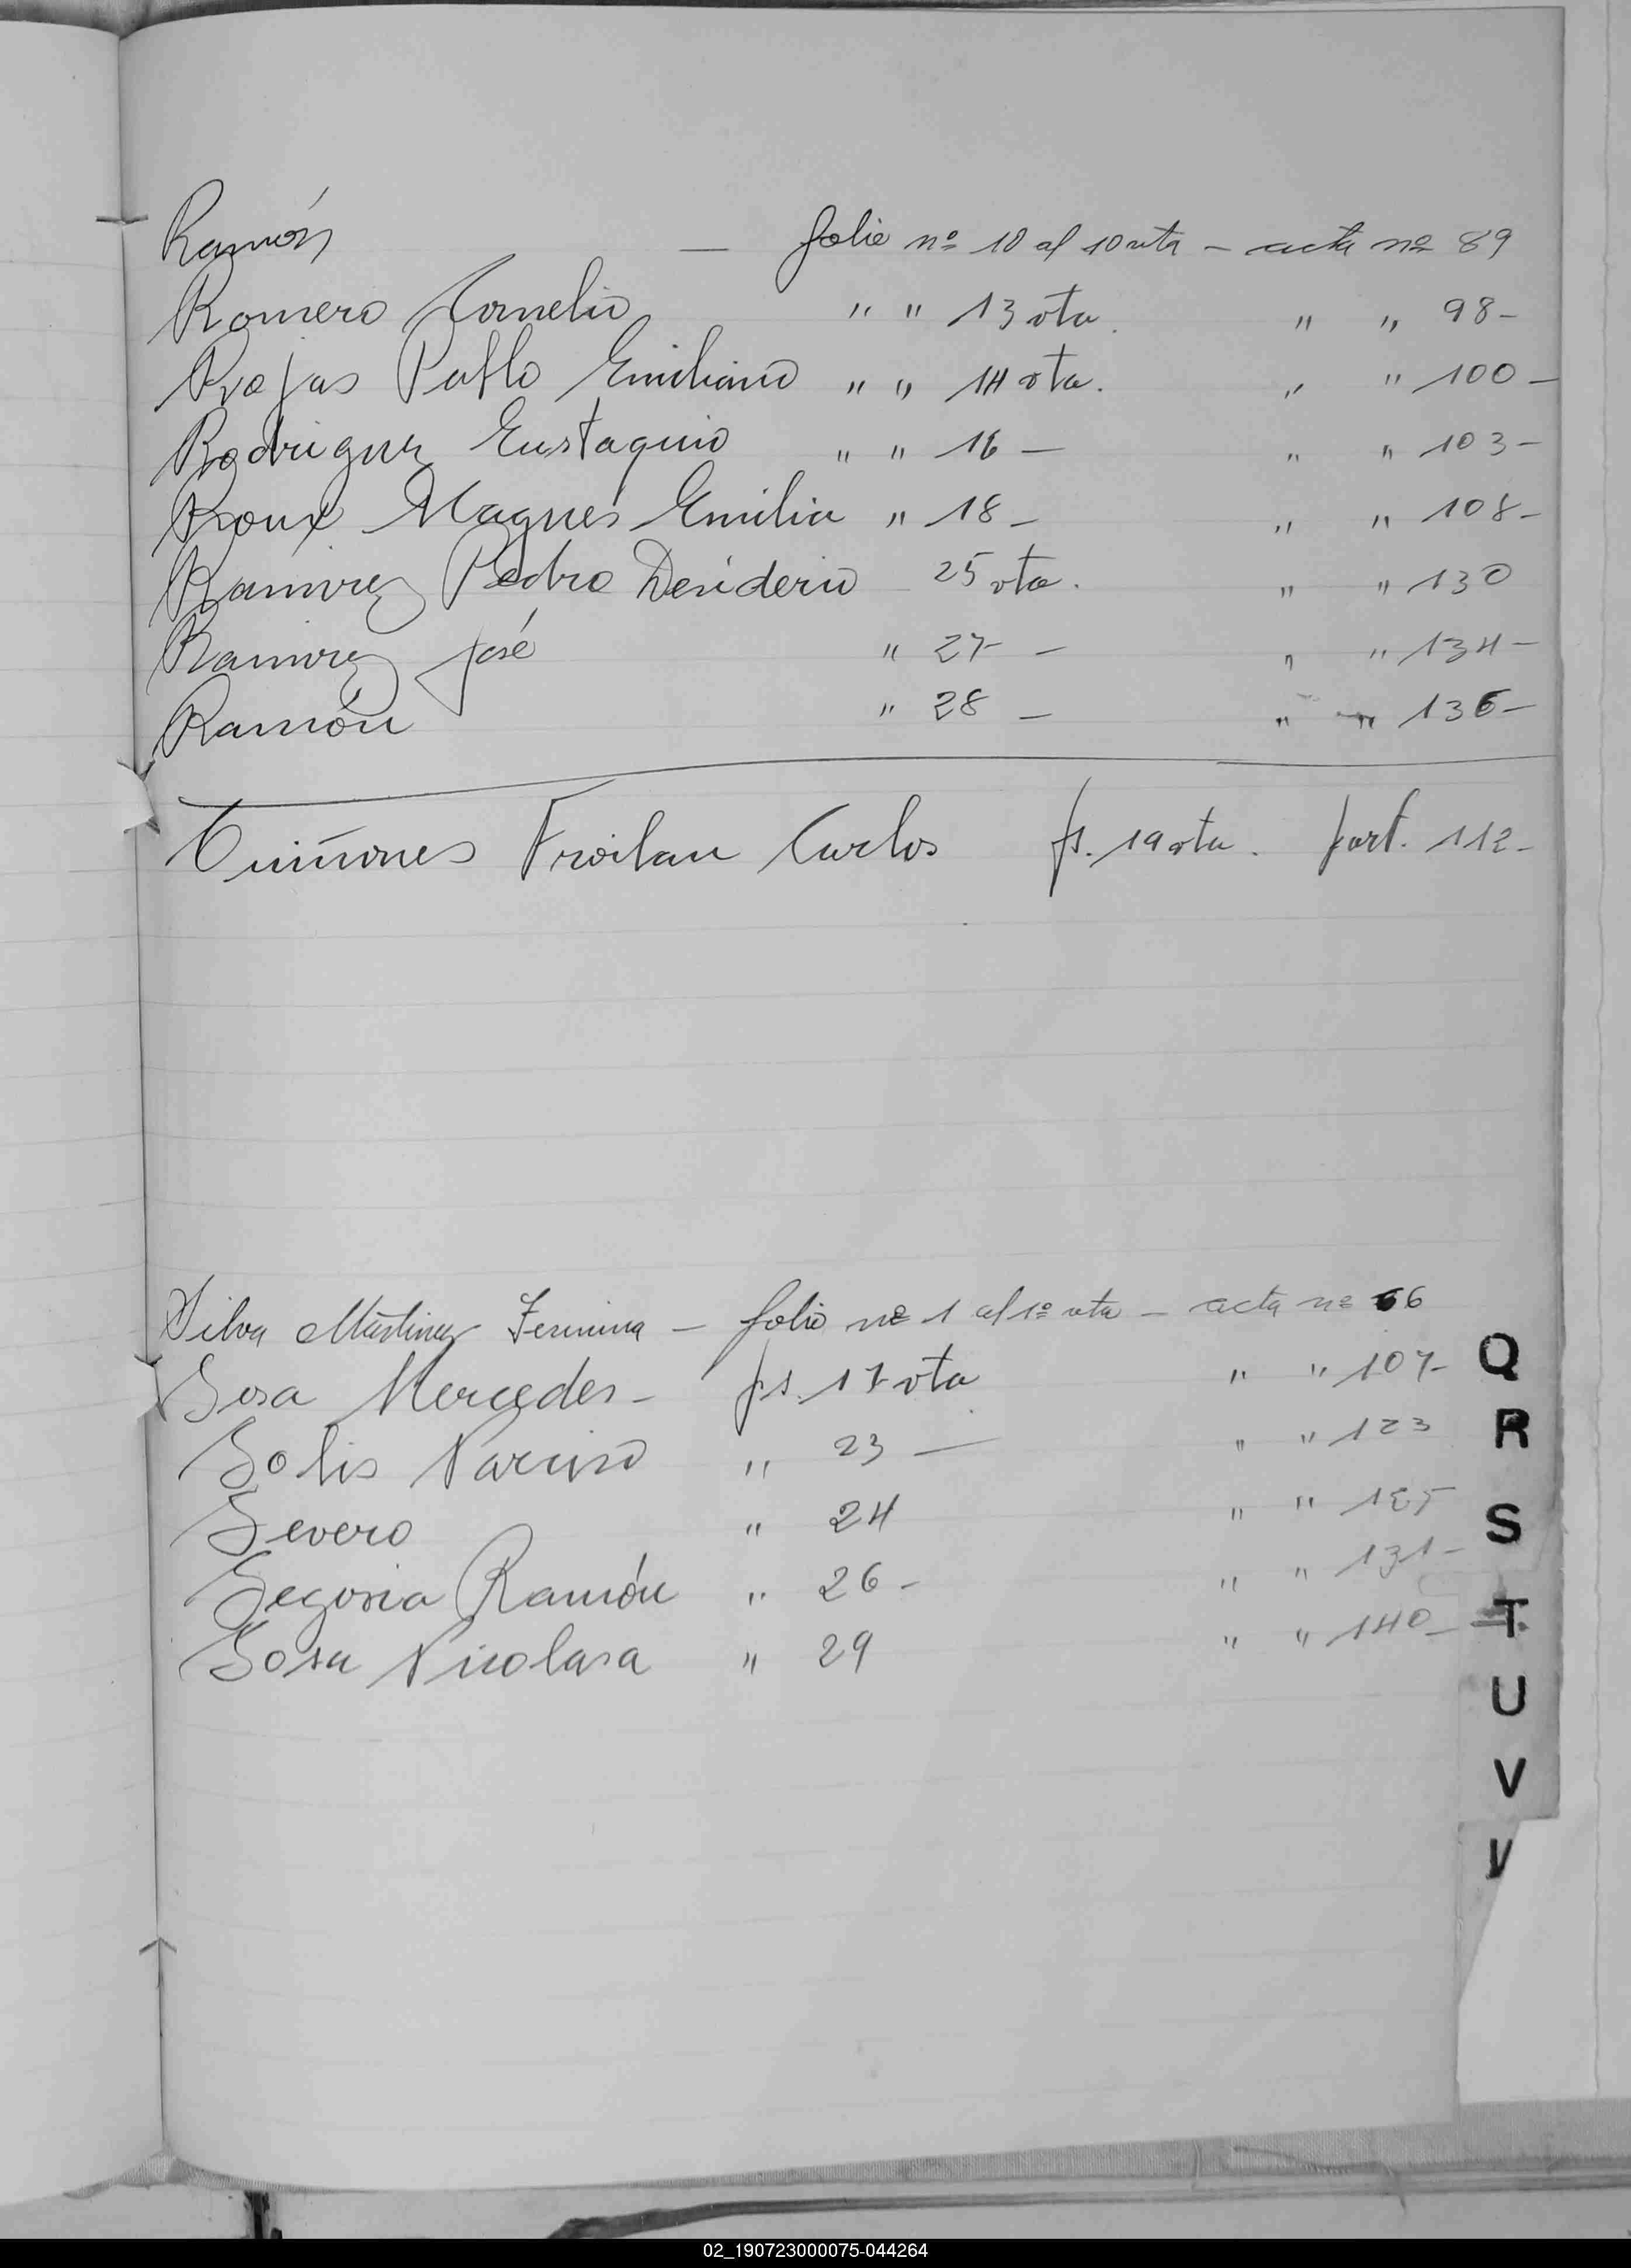 Ramón — folio nº 10 al 10 vta — acta nº 89
Romero Cornelio " " 13 vta. " " 98-
Rojas Pablo Emiliano " " 14 vta. " " 100-
Rodriguez Eustaquio " " 16 — " " 103-
Roux Magnes Emilia " 18- " " 108-
Ramirez Pedro Desiderio 25 vta. " " 130
Ramirez José " 27 - " " 134-
Ramón " 28 - " " 136-
Quiñones Froilan Carlos fs. 19 vta. part. 112-
Silva Martinez Fermina - folio nº 1 al 1º vta - acta nº 66
Sosa Mercedes- fs. 17 vta " " 107-
Solis Narciso " 23 — " " 123
Severo " 24 " " 125
Segovia Ramón " 26- " " 131-
Sosa Nicolasa " 29 " " 140-
Q
R
S
T
U
V
02_190723000075-044264